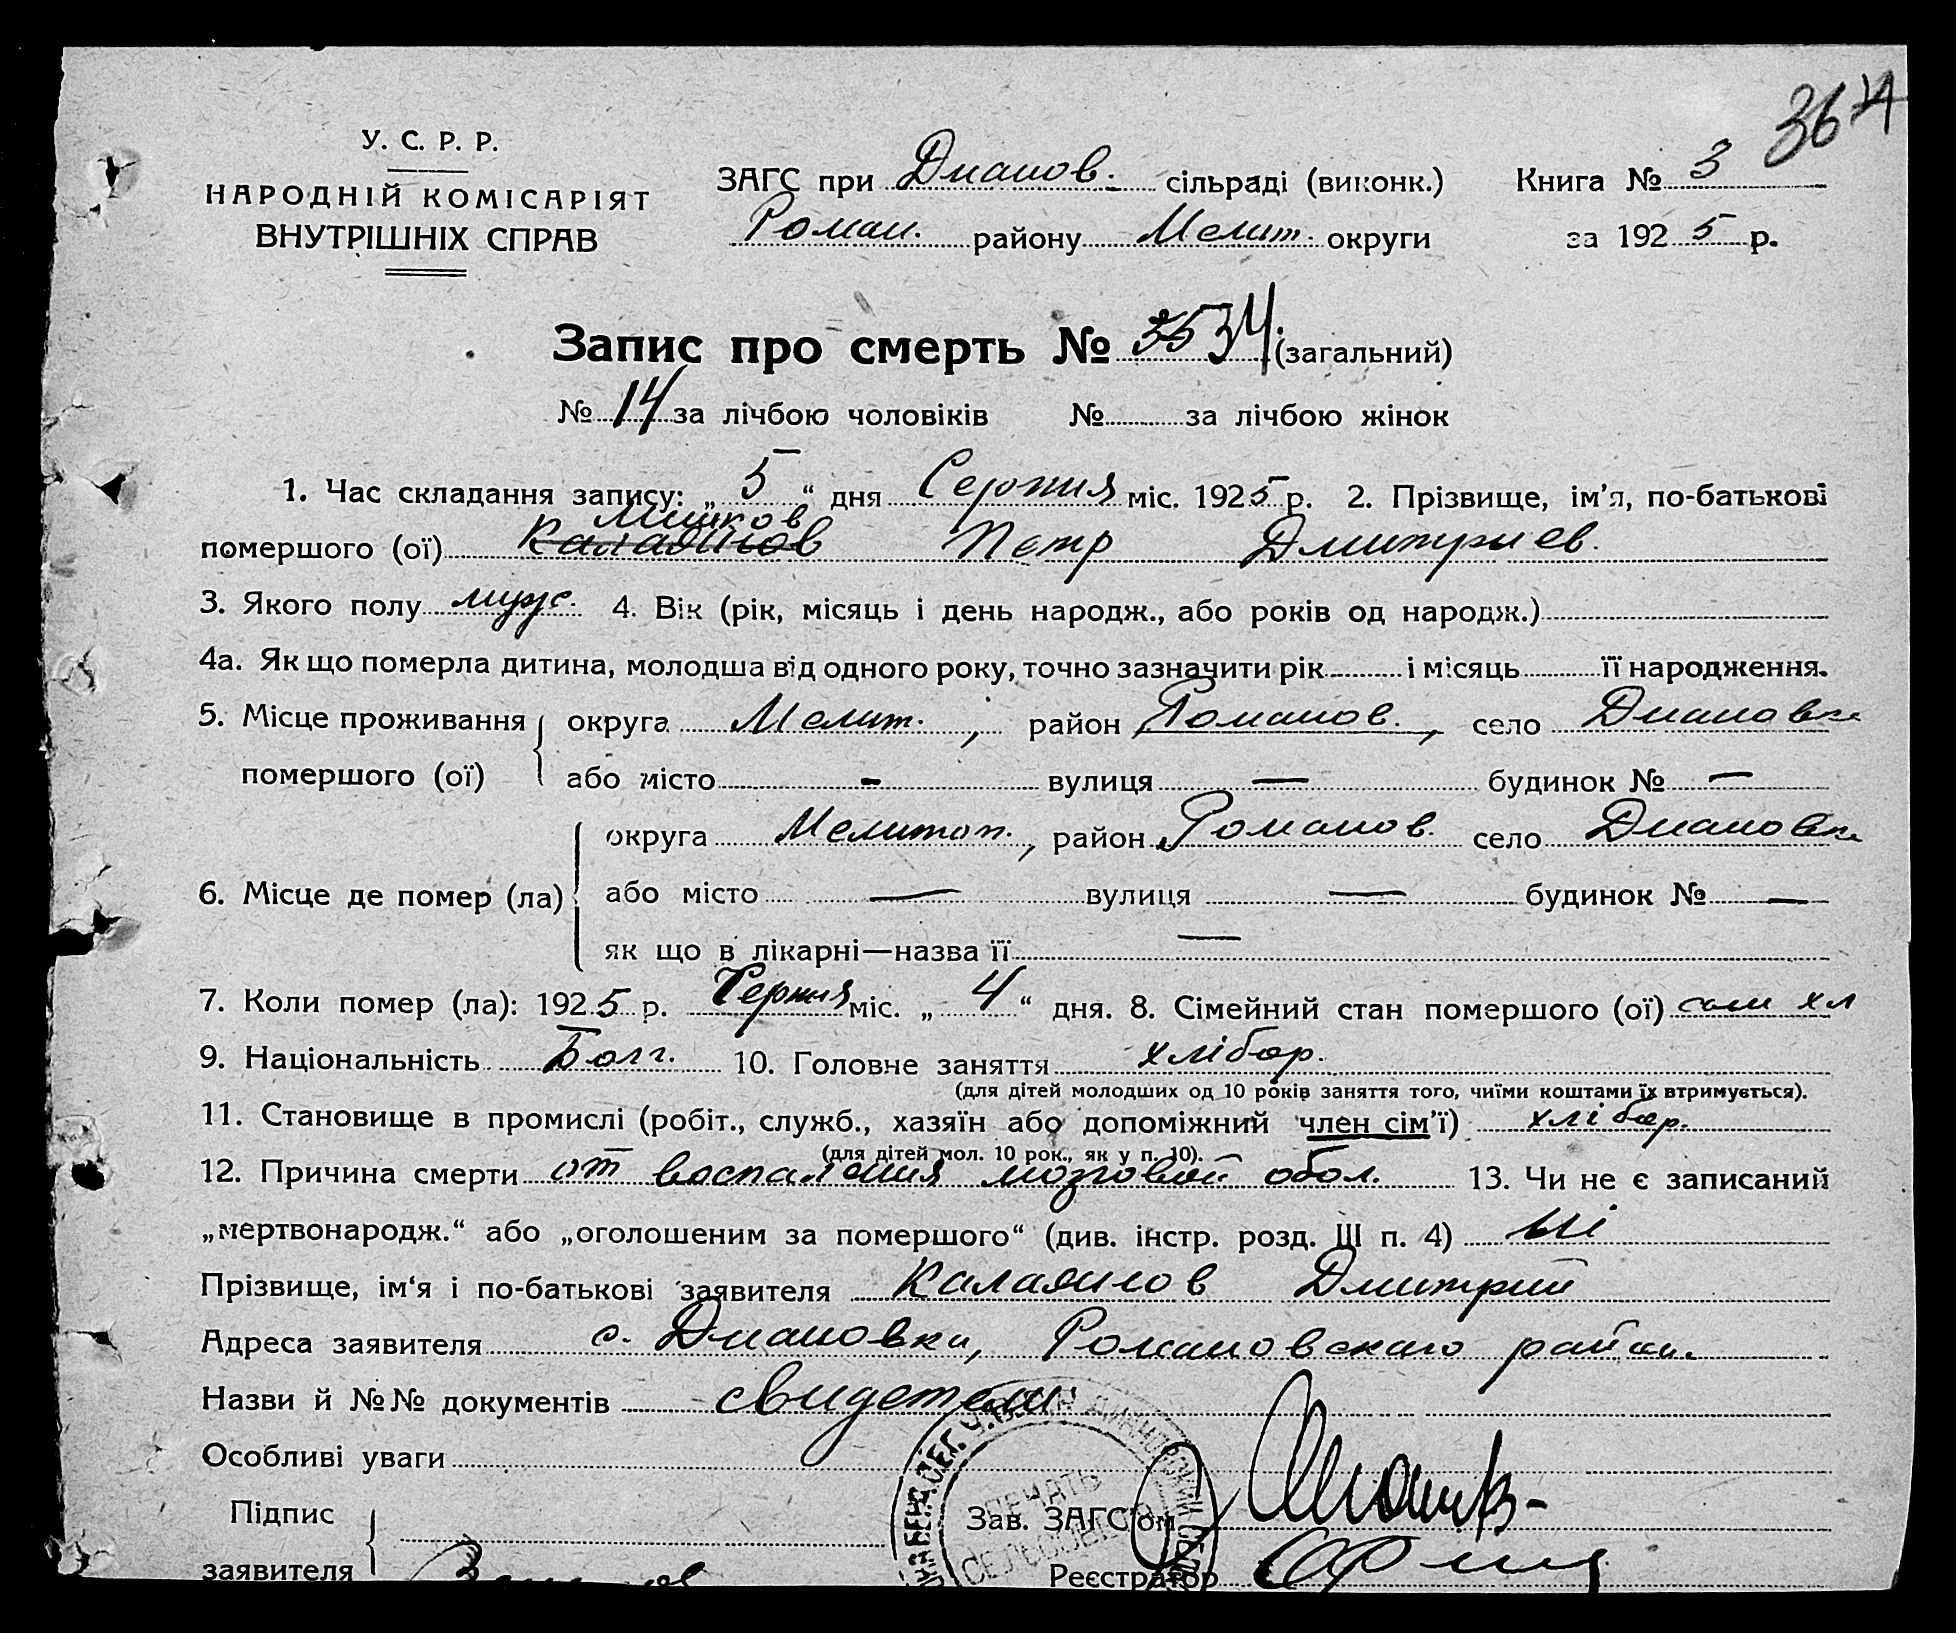 364
У. С. Р. Р.
НАРОДНІЙ КОМІСАРІЯТ
ВНУТРІШНІХ СПРАВ
ЗАГС при Дианов. сільраді (виконк.) Книга № 3
Роман. району Мелит. округи за 1925 р.
Запис про смерть № 34 (загальний)
№ 14 за лічбою чоловіків № за лічбою жінок
1. Час складання запису: „5“ дня Серпния міс. 1925 р. 2. Прізвище, ім’я, по-батькові
Мишков
помершого (ої) Калаянов Петр Дмитриев.
3. Якого полу муж. 4. Вік (рік, місяць і день народж., або років од народж.)
4а. Як що померла дитина, молодша від одного року, точно зазначити рік і місяць її народження.
5. Місце проживання помершого (ої) округа Мелит., район Романов., село Диановка
або місто - вулиця — будинок № —
6. Місце де помер (ла) округа Мелитоп., район Романов. село Диановка
або місто — вулиця — будинок № —
як що в лікарні—назва її —
7. Коли помер (ла): 1925 р. Серпния міс. „4“ дня. 8. Сімейний стан помершого (ої)
9. Національність Болг. 10. Головне заняття хлібор.
(для дітей молодших од 10 років заняття того, чиїми коштами їх втримується).
11. Становище в промислі (робіт., служб., хазяїн або допоміжний член сім’ї) хлібор.
(для дітей мол. 10 рок., як у п. 10).
12. Причина смерти от воспаления мозговой обол. 13. Чи не є записаний
„мертвонародж.“ або „оголошеним за помершого“ (див. інстр. розд. III п. 4) ні
Прізвище, ім‘я і по-батькові заявителя Калаянов Дмитрий
Адреса заявителя с. Диановки, Романовскаго район.
Назви й №№ документів свидетели
Особливі уваги
Підпис
заявителя
Зав. ЗАГС'ом
Реєстратор
ПЕЧАТЬ
СЕЛЬСОВЕТА